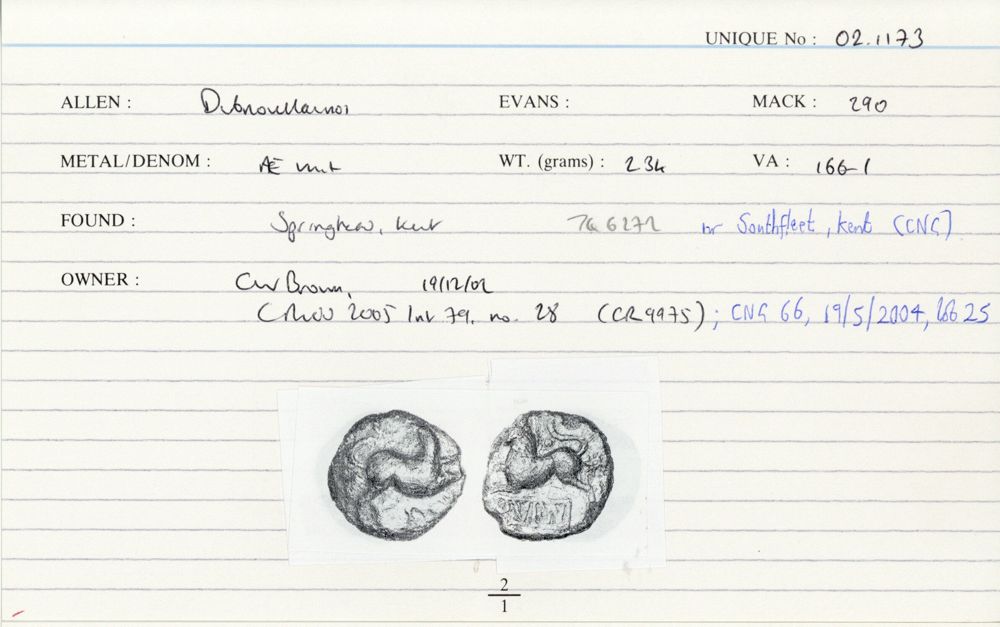 UNIQUE No : 02.1173
ALLEN : Dubnovellaunos EVANS : MACK : 290
METAL/DENOM : AE unit WT. (grams) : 2.34 VA : 166-1
FOUND : Springhead, Kent TQ 6272 nr Southfleet, Kent (CNG)
OWNER : CW Brown, 19/12/02
2005 79, no. 28 (CR9975); CNG 66, 19/5/2004, lot 625
2
1